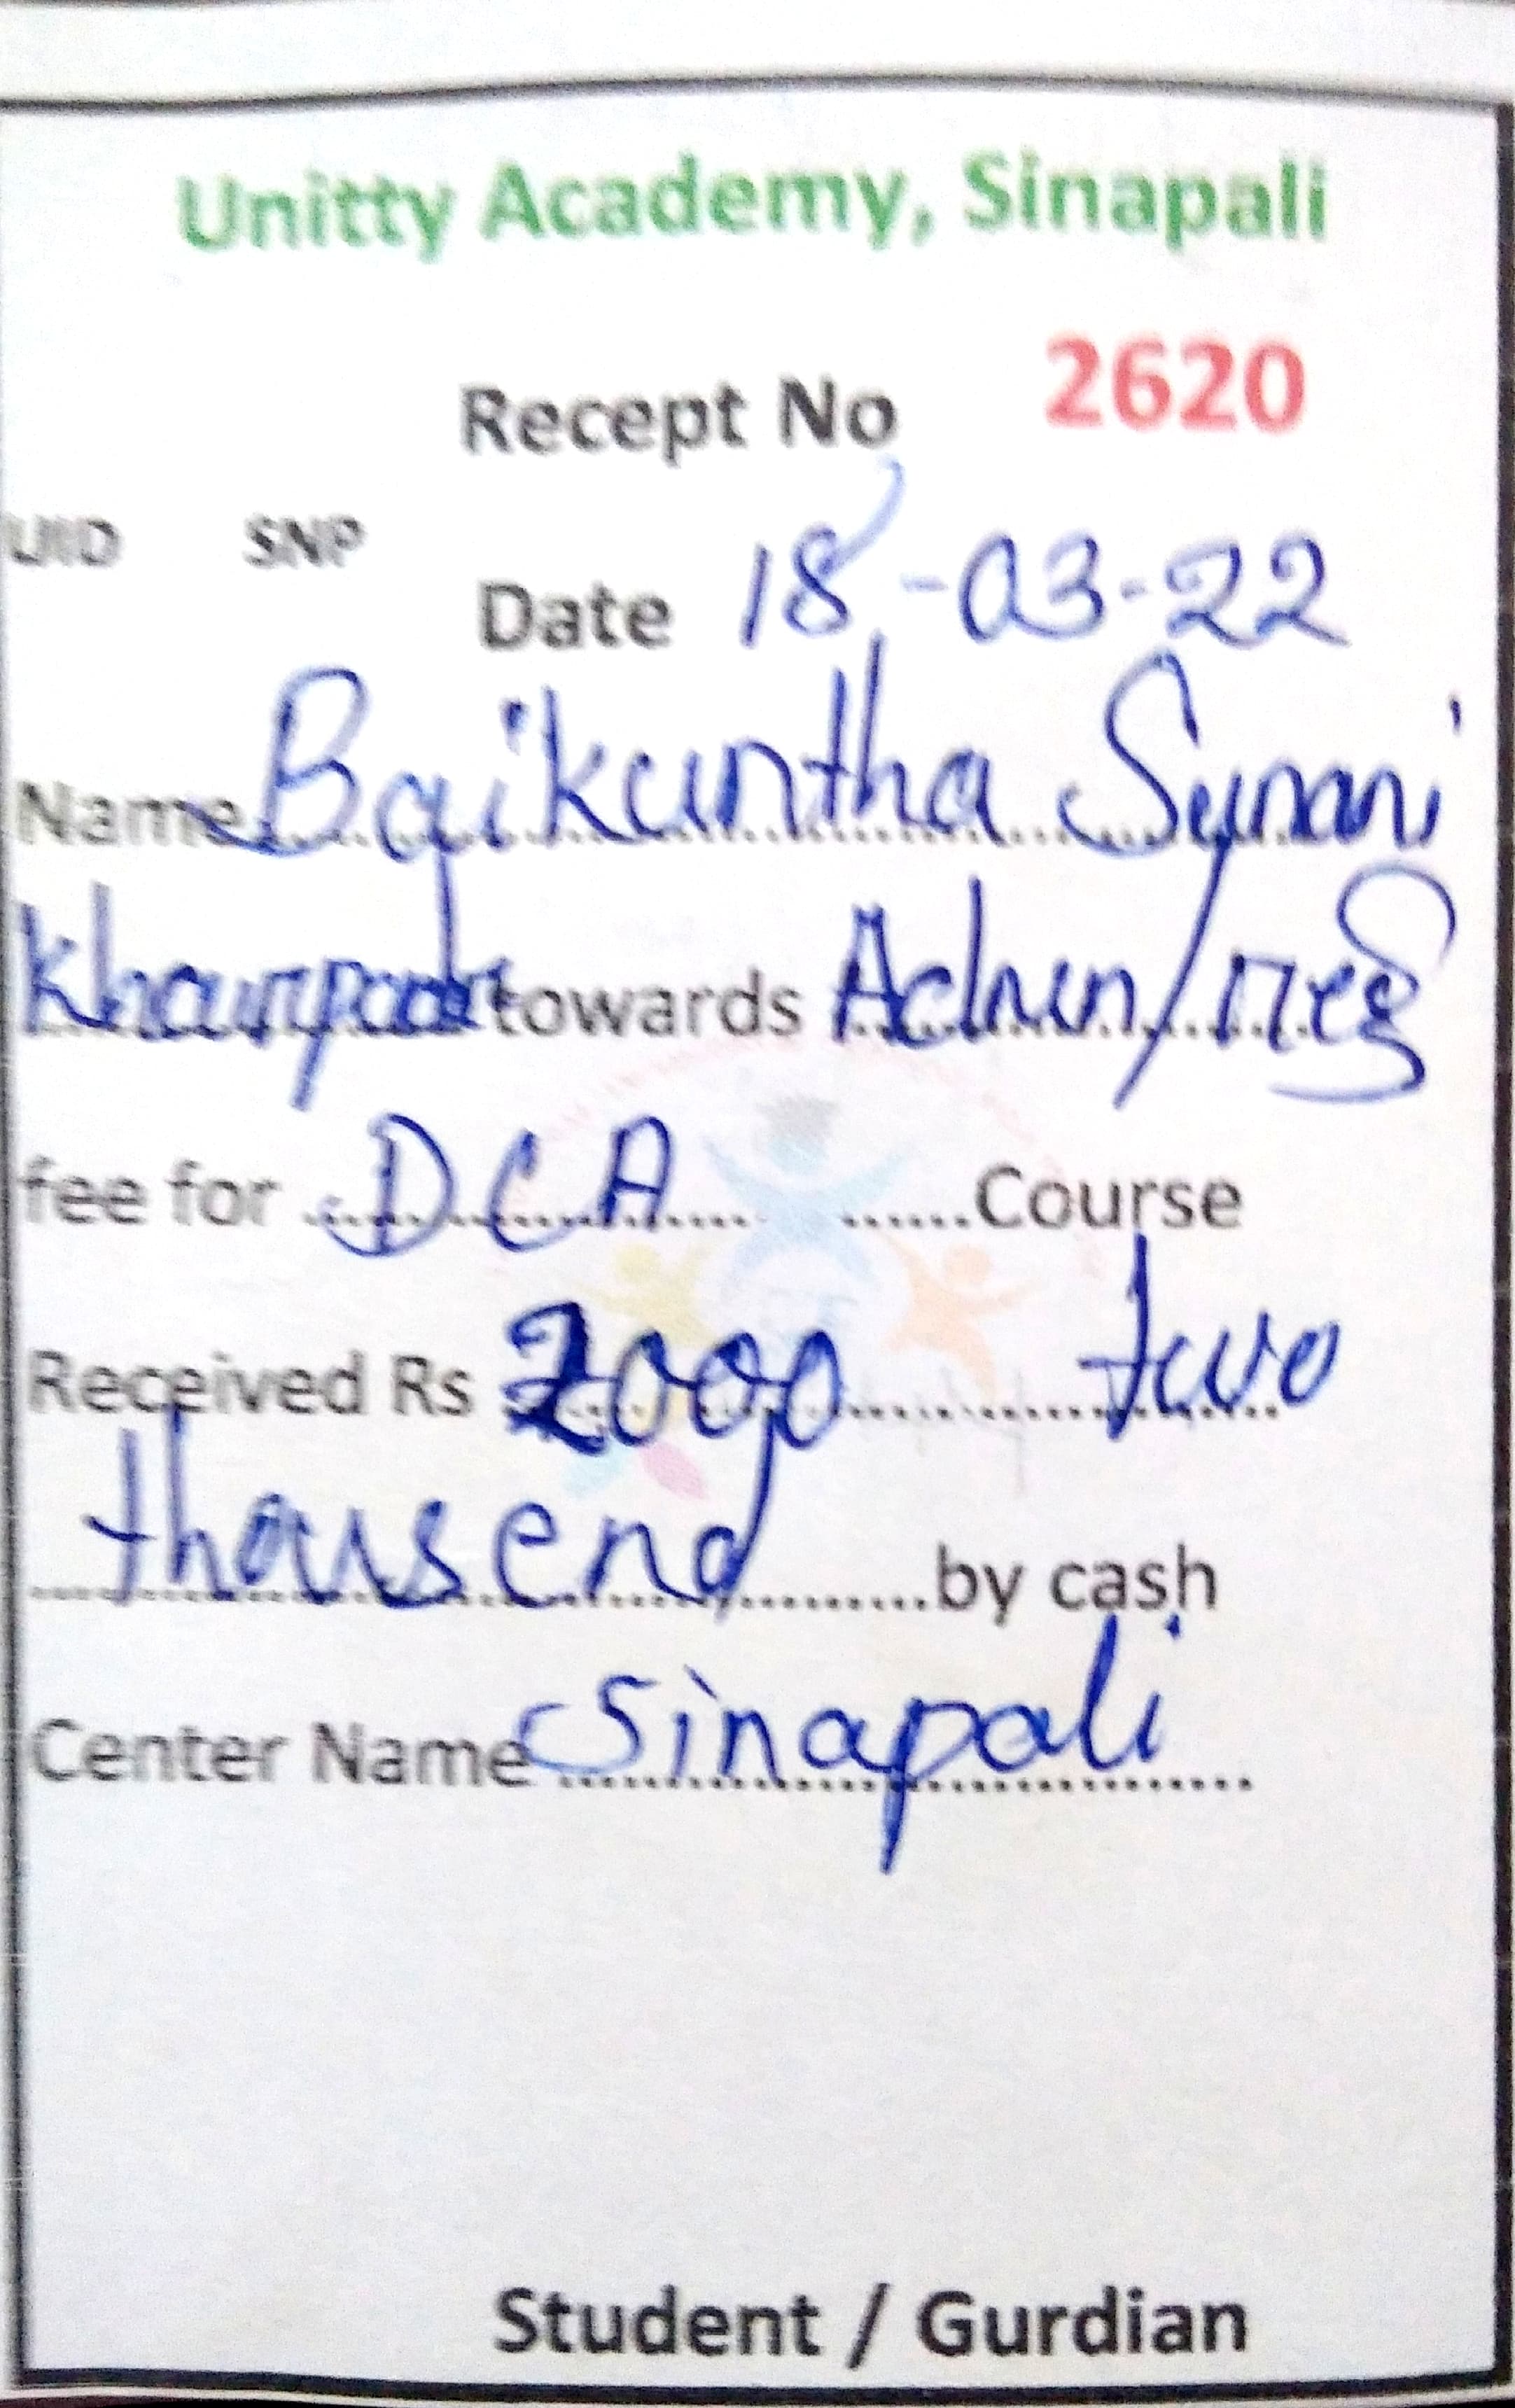 Unitty Academy, Sinapali
Recept No 2620
UID SNP
Date 18-03-22
Name Baikuntha Sunani
towards Admn/reg
fee for DCA Course
Received Rs 2000 two
thousend by cash
Center Name Sinapali
Student / Gurdian